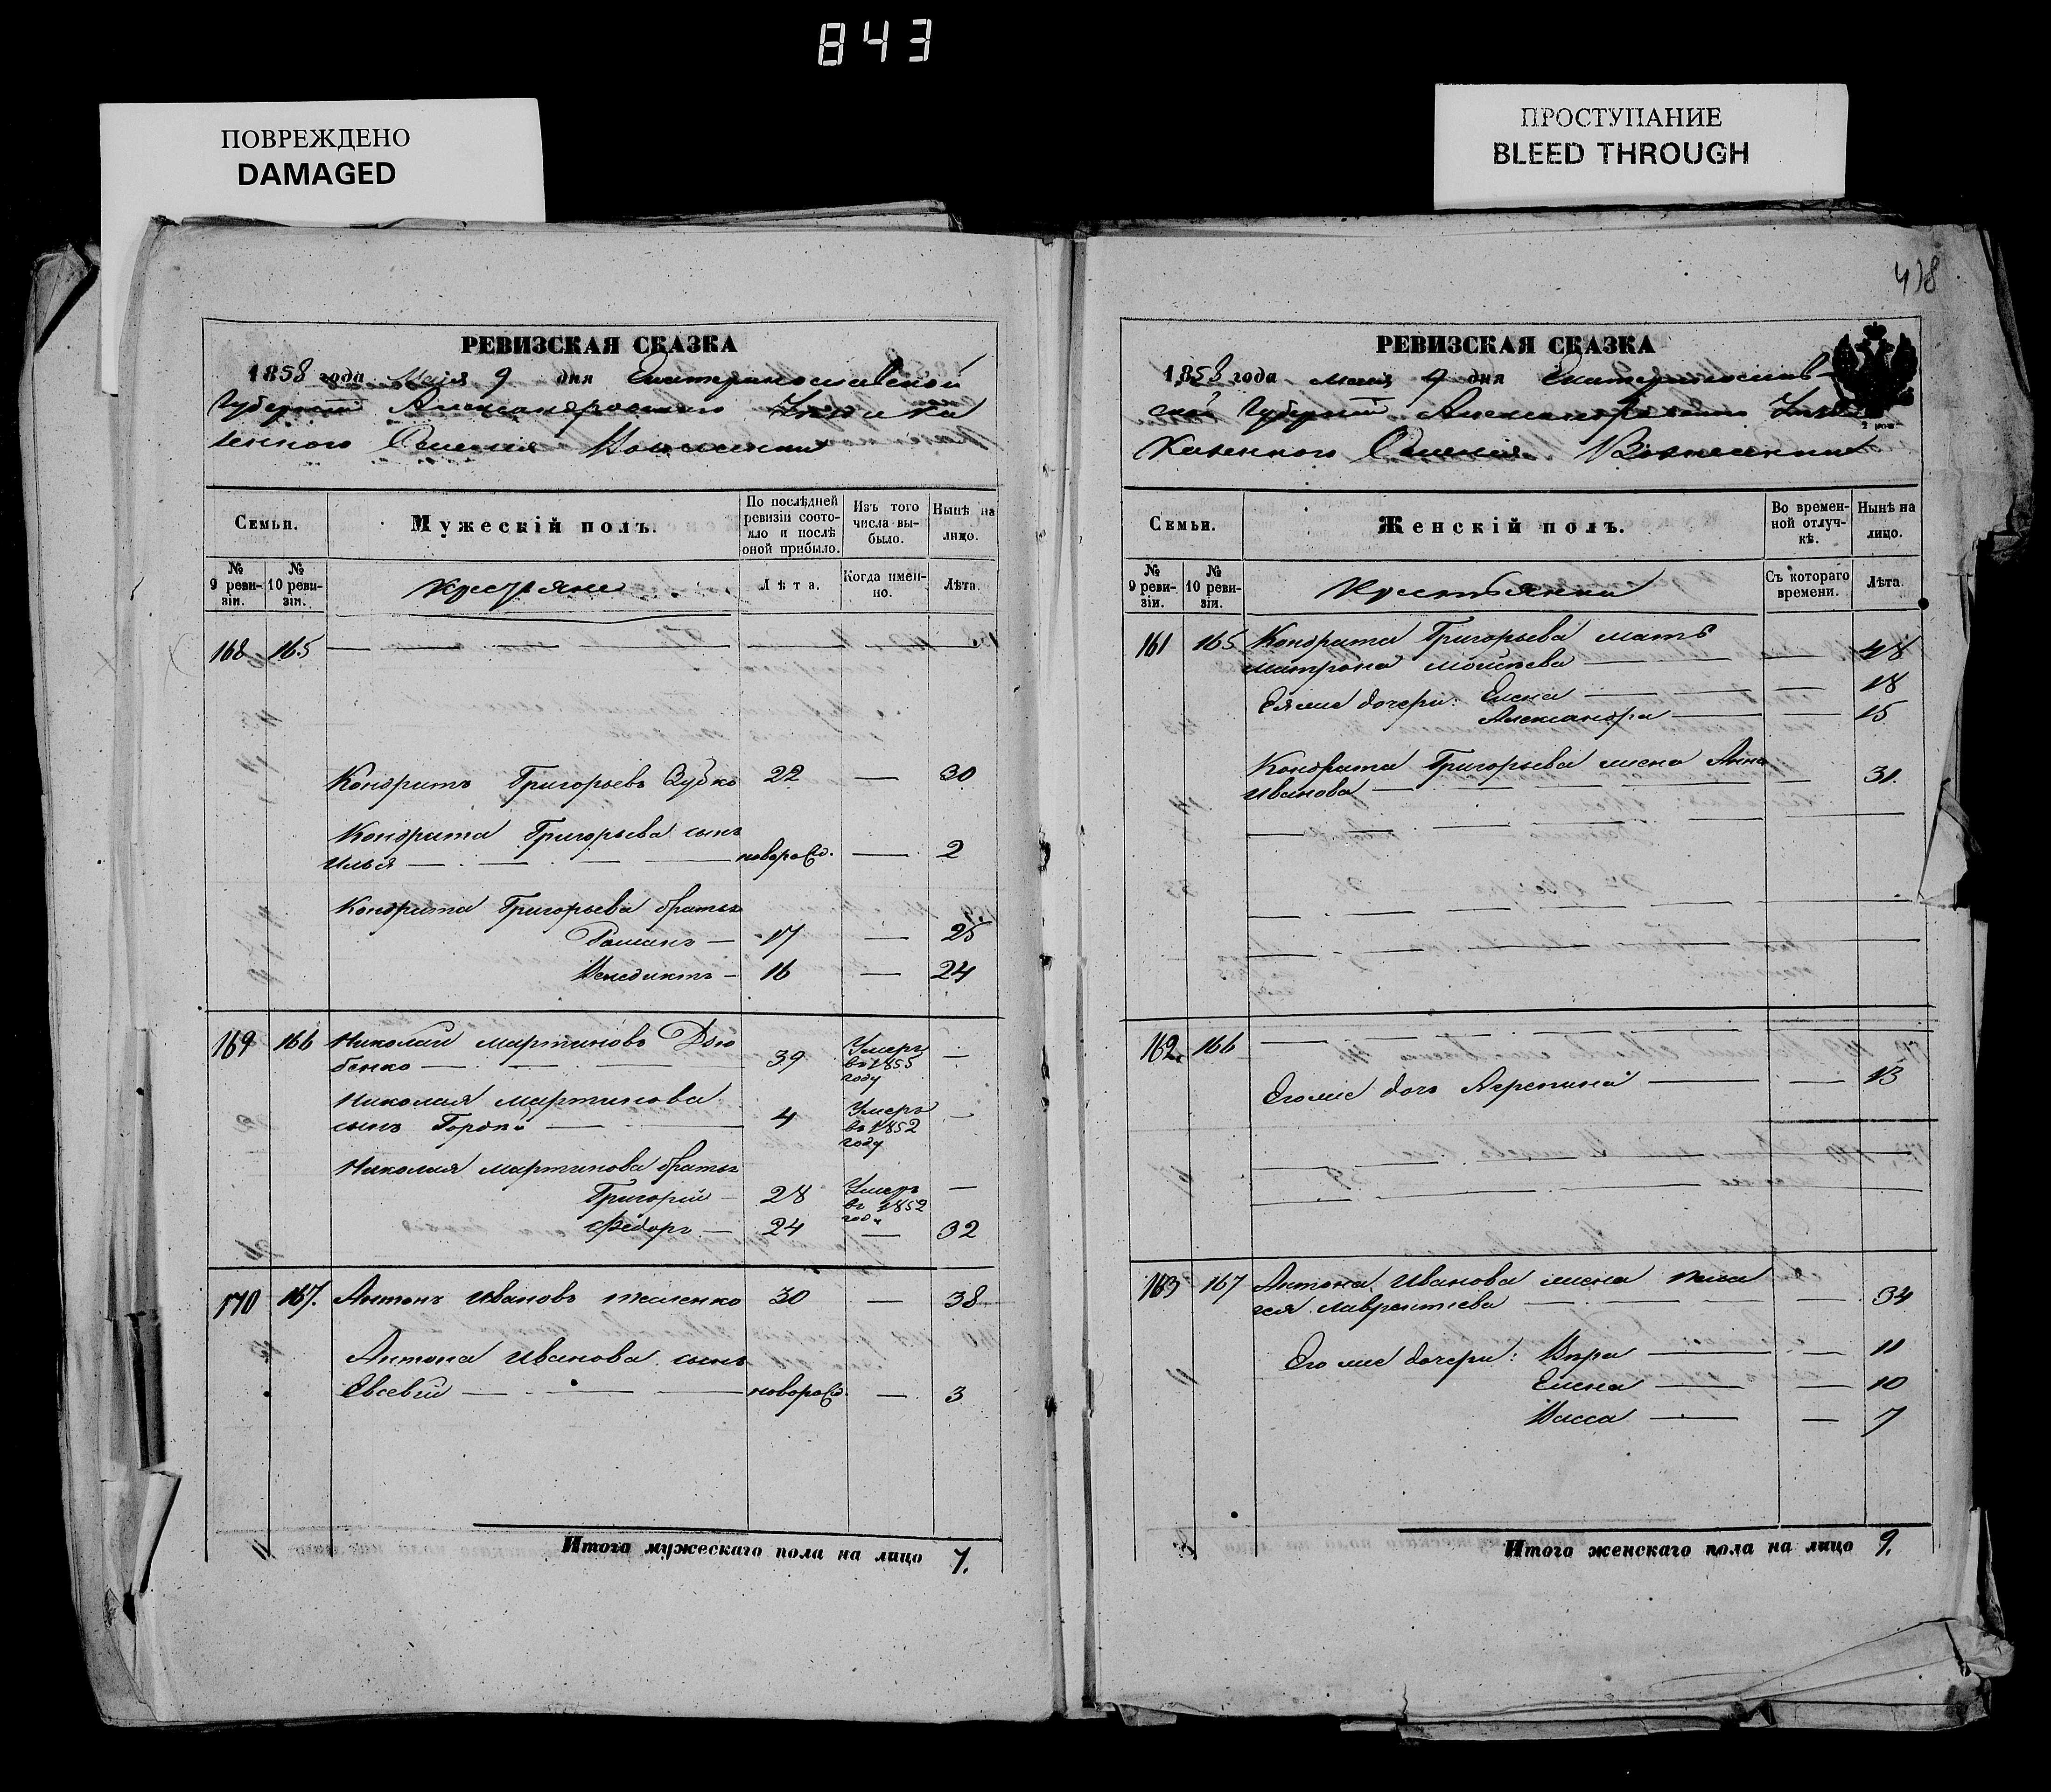 843
ПОВРЕЖДЕНО
DAMAGED
ПРОСТУПАНИЕ
BLEED THROUGH
РЕВИЗСКАЯ СКАЗКА
1858 года Мая 9 дня Екатеринославской
Губернии Александровского Уезда Ка
зенного Селения Вознесенки
Семьи.
Мужескій полъ.
По послѣдней ревизіи состояло и послѣ оной прибыло.
Изъ того числа выбыло.
Нынѣ на лицо.
№ 9 ревизіи.
№ 10 ревизіи.
Крестьяне
Лѣта.
Когда именно.
Лѣта.
168 165
Кондратъ Григорьевъ Зубко 22 — 30
Кондрата Григорьева сынъ
Илья — новорожд. — 2
Кондрата Григорьева братья
Романъ — 17 — 25
Венедиктъ — 16 — 24
169 166 Николай Мартиновъ Дзю
бенко — 39 Умеръ въ 1855 году —
Николая Мартинова
сынъ Гордѣй — 4 Умеръ въ 1852 году —
Николая Мартинова братья
Григорій — 28 Умеръ въ 1852 году —
Федоръ — 24 — 32
170 167. Антонъ Ивановъ 30 — 38
Антона Иванова сынъ
Евсевій — новорожд. — 3
Итого мужескаго пола на лицо 7.
418
РЕВИЗСКАЯ СКАЗКА
1858 года Мая 9 дня Екатеринослав-
ской Губерніи Александровского Уезда
Казенного Селенія Вознесенки
Семьи.
Женскій полъ.
Во временной отлучкѣ.
Нынѣ на лицо.
№ 9 ревизіи.
№ 10 ревизіи.
Крестьянки
Съ котораго времени.
Лѣта.
161 165 Кондрата Григорьева мать
Матрона Моисѣева — — 48
Ея же дочери: Елена — — 18
Александра — — 15
Кондрата Григорьева жена Анна
Иванова — — 31.
162. 166
Его же дочь Агрепина — — 13
163 167 Антона Иванова жена Пела
гея Лаврентіева — — 34
Его же дочери: Вѣра — — 11
Елена — — 10
Васса — — 7
Итого женскаго пола на лицо 9.